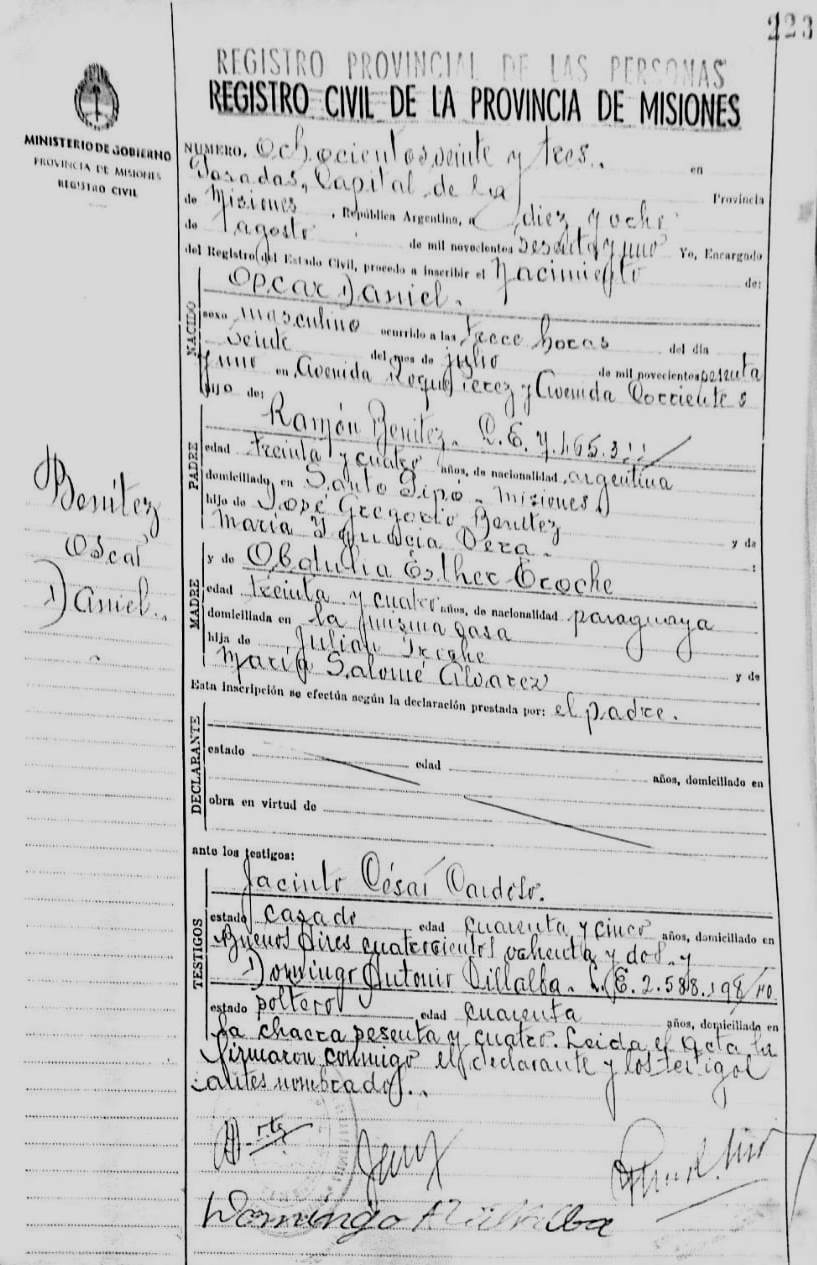 223
REGISTRO PROVINCIAL DE LAS PERSONAS
REGISTRO CIVIL DE LA PROVINCIA DE MISIONES
MINISTERIO DE GOBIERNO
PROVINCIA DE MISIONES
REGISTRO CIVIL
NUMERO. Ochocientos veinte y tres. en
Posadas, Capital de la Provincia
de Misiones, República Argentina, a diez y ocho
de agosto de mil novecientos sesenta y uno Yo, Encargado
del Registro del Estado Civil, procedo a inscribir el Nacimiento de:
NACIDO
Oscar Daniel.
sexo masculino ocurrido a las trece horas del día
veinte del mes de julio de mil novecientos sesenta
y uno en Avenida Roque Perez y Avenida Corrientes
hijo de:
PADRE
Ramón Benitez. L.E. 7.465.3
edad treinta y cuatro años, de nacionalidad argentina
domiciliado en Santo Pipó - Misiones
hijo de José Gregorio Benitez y de
Maria Ignacia Vera.
MADRE
y de Obdulia Esther Eroche :
edad treinta y cuatro años, de nacionalidad paraguaya
domiciliada en la misma casa
hija de Julian y de
María Salomé Alvarez
Esta inscripción se efectúa según la declaración prestada por: el padre.
DECLARANTE
estado edad años, domiciliado en
obra en virtud de
ante los testigos:
TESTIGOS
Jacinto César Cardoso.
estado casado edad cuarenta y cinco años, domiciliado en
Buenos Aires cuatrocientos ochenta y dos y
Domingo Antonio Villalba. L.E. 2.588.198
estado soltero edad cuarenta años, domiciliado en
la chacra sesenta y cuatro. Leida el acta la
firmaron conmigo el declarante y los testigos
antes nombrados.
Benítez
Oscar
Daniel.
Domingo A Villalba